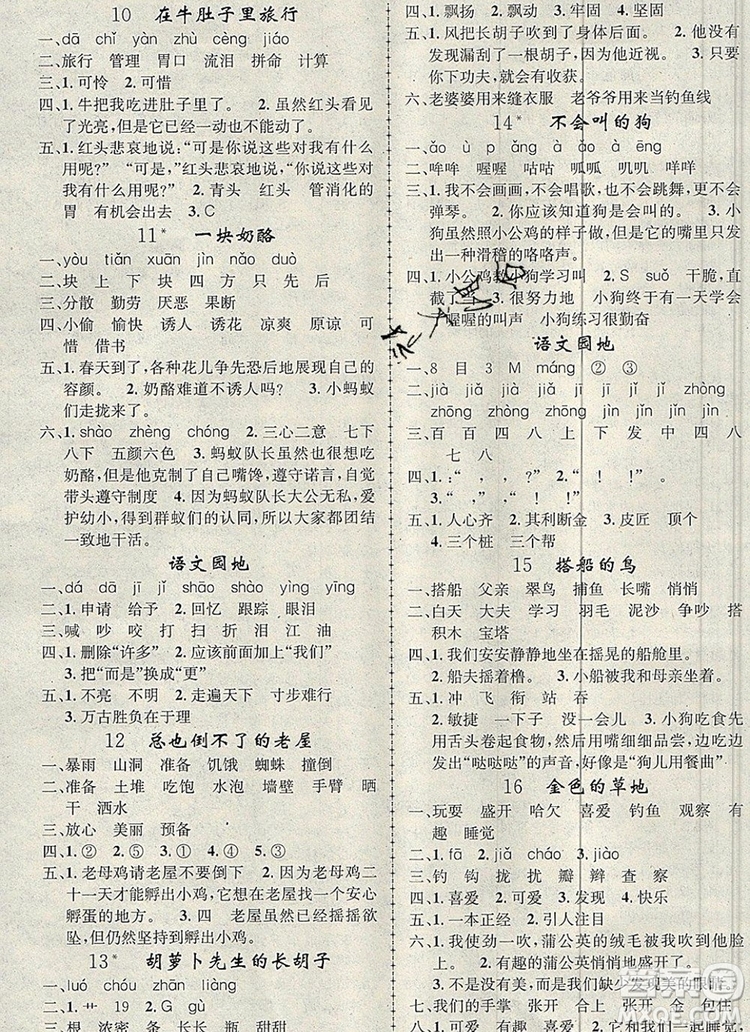 10 在牛肚子里旅行
一、dā chǐ yàn zhù cèng jiáo
二、旅行 管理 胃口 流泪 拼命 计算
三、1. 可怜 2. 可惜
四、1. 牛把我吃进肚子里了。 2. 虽然红头看见
了光亮，但是一动也不能动了。
五、1. 红头悲哀地说：“可是你说这些对我有什
么用呢？”“可是”，红头悲哀地说，“你说这些对
我有什么用呢？” 2. 青头 红头 管消化的
胃 有机会出去 3. C
11* 一块奶酪
一、yòu tiān xuān diàn zòng
二、块 上 下 块 四 方 只 先 后
三、分散 勤劳 厌恶 果断
四、小偷 愉快 诱人 诱花 凉爽 原谅 可
惜 借书
五、1. 春天到了，各种花儿争先恐后地展现自己的
容颜。 2. 奶酪难道不诱人吗？ 3. 小蚂蚁
们走拢来了。
六、1. shào zhèng chóng 2. 三心二意 七下
八下 五颜六色 3. 蚂蚁队长虽然也想吃
奶酪，但他克制了自己嘴馋，遵守诺言，自觉
带头遵守制度 4. 因为蚂蚁队长大公无私，爱
护幼小，得到群蚁们的认同，所以大家都团结
一致地干活。
语文园地
一、dá dā jī jǐ shāo shào yìng yīng
二、1. 申请 给予 2. 回忆 跟踪 眼泪
三、喊 吵 咬 打 扫 折 泪 江
四、1. 删除“许多” 2. 应该前面加上“我们”
3. 把“而是”换成“就是”
五、1. 不亮 不明 2. 走遍天下 寸步难行
3. 万古胜负在于理
12 总也倒不了的老屋
一、暴雨 山洞 准备 饥饿 蜘蛛 撞倒
二、准备 土堆 吃饱 水泡 墙壁 手臂 晒
干 洒水
三、放心 美丽 预备
四、1. ② ④ 2. ① ③ 3. ① ② 4. ② ①
五、1. 老母鸡请老屋不要倒下 2. 因为老母鸡二
十一天才能孵出小鸡，它又找不到一个安心
孵蛋的地方。 3. 四 老屋虽然已经摇摇欲
坠，但仍然坚持到老母鸡孵出小鸡。
13* 胡萝卜先生的长胡子
一、luó chóu záo zhāo
二、1. 艹 19 2. G gù
三、根 浓密 条 长 长 瓶 甜
四、1. 飘扬 2. 飘动 3. 牢固 4. 坚固
五、1. 风把长胡子刮到了身体后面。 2. 他没有
发现漏刮了一根胡子，因为他近视。 3. 只要
你努力了，就会有收获。
六、老婆婆用来缝衣服 老爷爷用来当钓鱼线
14* 不会叫的狗
一、ǎo ù pǎng ā ào ēng
二、哞哞 喔喔 咕咕 呱呱 嗡嗡 咩咩
三、1. 我不会画画，不会唱歌，也不会跳舞，更不会
弹琴。 2. 你应该知道狗是会叫的。 3. 小狗
偷偷观察小公鸡的样子做，但从他的嘴里发出
一种滑稽的咯咯声。
四、1. 小公鸡教小狗学习叫 2. S suǒ 干脆，直
截了当 3. 很努力地 小狗终于有一天学会
喔喔的叫声 小狗练习很勤奋
语文园地
一、8 目 3 M máng ② ③
二、jià jiǎ jiǎ jià jǐ jǐ jǐ jǐ zhòng
zhōng zhòng zhōng jìn jǐn jìn jǐn
三、百 百 四 八 上 下 发 中 四 八
七 八
四、1.：“ ， ， ！” 2. “ ！ ！ ”
3.：“ ， ？ ， ？”
五、1. 人心齐 2. 其利断金 3. 皮匠 顶
4. 三个桩 三个帮
15 搭船的鸟
一、搭船 父亲 翠鸟 捕鱼 长嘴 悄悄
二、白天 大夫 学习 羽毛 泥沙 争吵 搭
积木 宝塔
四、1. 我们安安静静地坐在摇晃的船舱里。
2. 船夫在用力地摇着船。 3. 小船被我和母亲坐着。
五、1. 冲 飞 衔 站 吞
2. 敏捷 一下子 没一会儿 3. 小狗吃食先
用舌头卷起食物，然后送入嘴里，边吃边
发出“哒哒哒”的声音，好像“狗儿用餐曲”
16 金色的草地
一、玩耍 盛开 哈欠 喜爱 钓鱼 观察 有
趣 睡觉
二、1. fā 2. jiǎ cháo 3. jiào
三、钓 钩 拢 扰 瓣 辫 察 擦
四、1. 喜爱 2. 可爱 3. 发现 4. 快乐
五、1. 一本正经 2. 引人注目
六、1. 我使劲一吹，蒲公英的绒毛被我吹走了。
2. 有趣的蒲公英悄悄地睡觉了。
3. 可爱的小朋友们在仔细地发现美的眼睛。
七、我们的手掌 张开 合上 花朵 张开 合